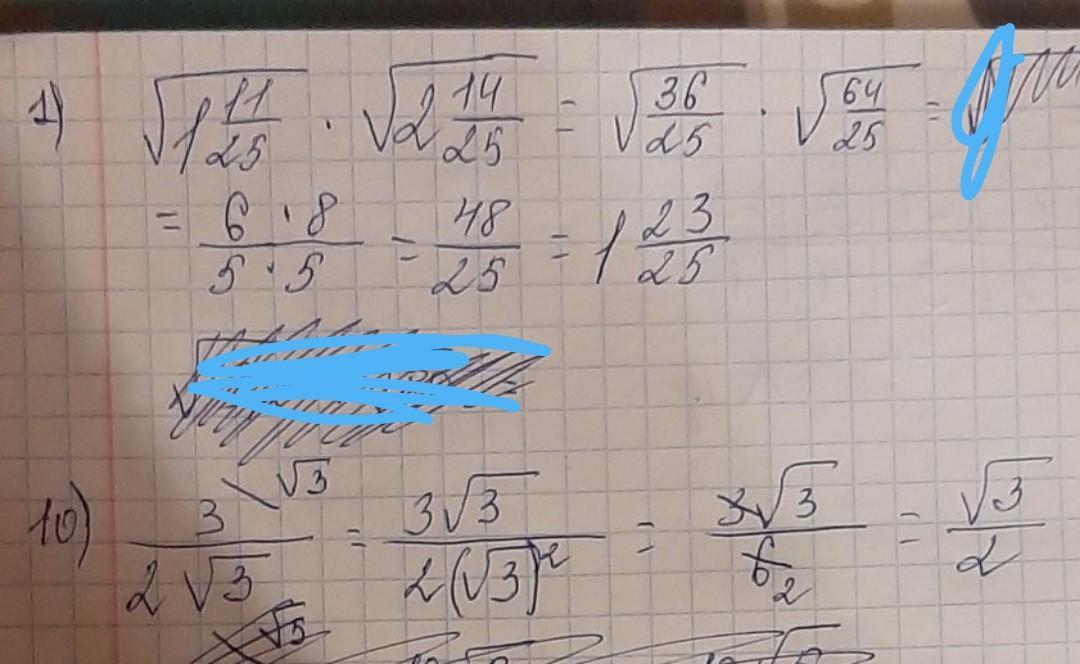 1) √(1 11/25) · √(2 14/25) = √(36/25) · √(64/25) =
= (6 · 8)/(5 · 5) = 48/25 = 1 23/25
10) 3\√3/(2√3) = 3√3/(2(√3)²) = 3√3/6 2 = √3/2
√5